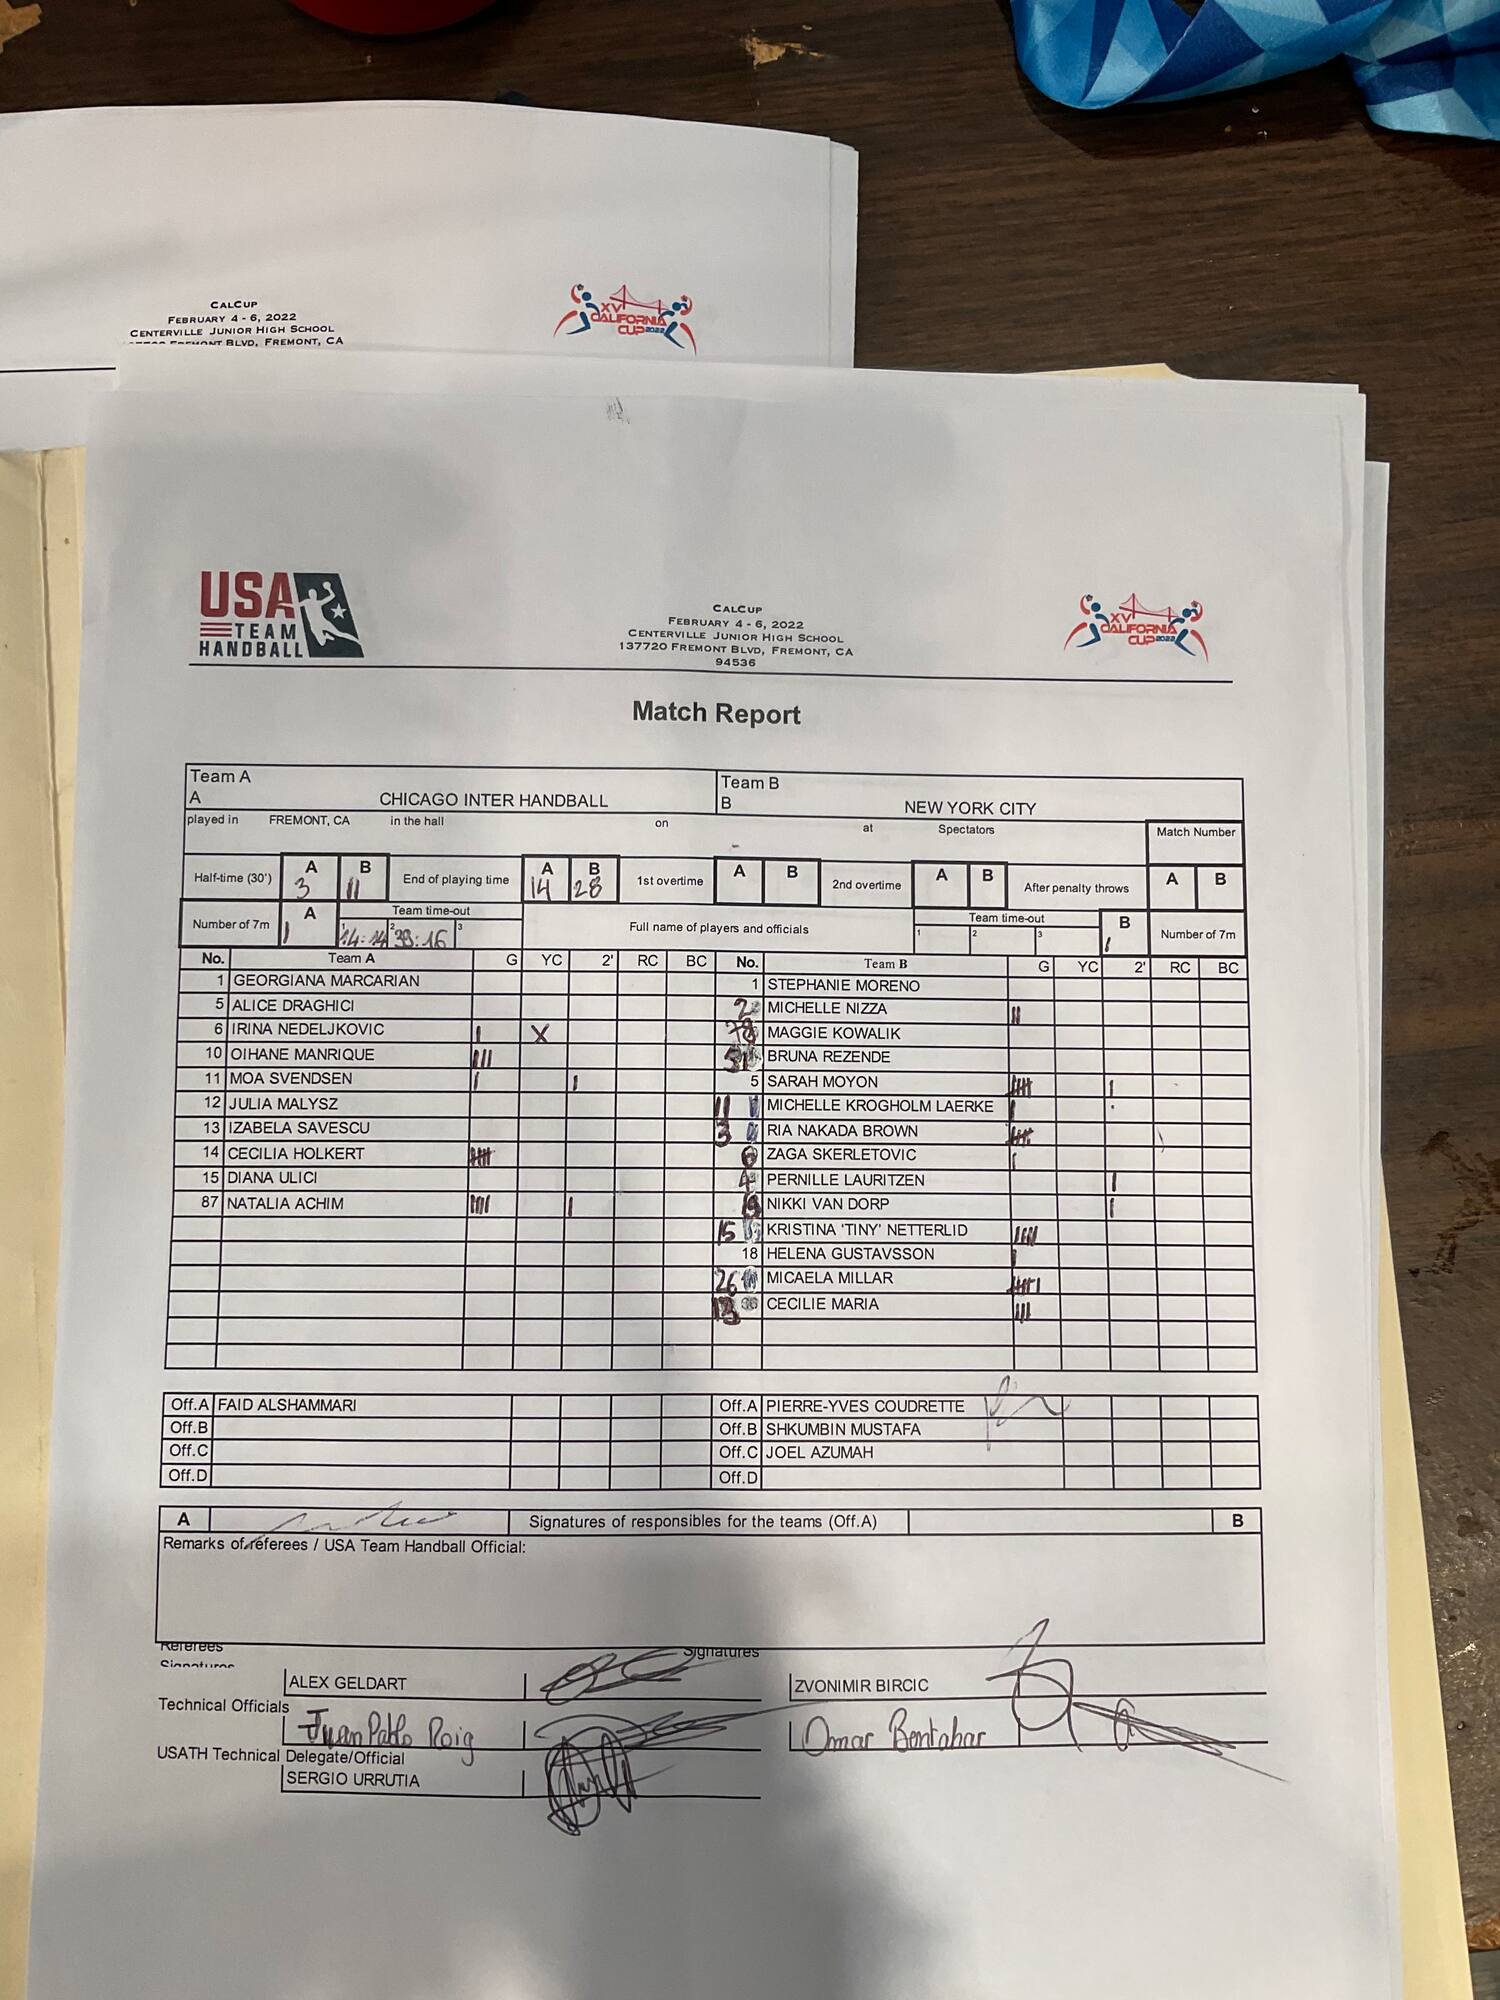 CALCUP
FEBRUARY 4 - 6, 2022
CENTERVILLE JUNIOR HIGH SCHOOL
FREMONT BLVD, FREMONT, CA
XV CALIFORNIA CUP 2022
USA
TEAM
HANDBALL
CALCUP
FEBRUARY 4 - 6, 2022
CENTERVILLE JUNIOR HIGH SCHOOL
137720 FREMONT BLVD, FREMONT, CA
94536
XV CALIFORNIA CUP 2022
Match Report
Team A Team B
A CHICAGO INTER HANDBALL B NEW YORK CITY
played in FREMONT, CA in the hall on at Spectators Match Number
Half-time (30') A 3 B 11 End of playing time A 14 B 28 1st overtime A B 2nd overtime A B After penalty throws A B
Number of 7m A Team time-out 1 14:14 2 39:16 3 Full name of players and officials Team time-out 1 2 3 B Number of 7m
No. Team A G YC 2' RC BC No. Team B G YC 2' RC BC
1 GEORGIANA MARCARIAN 1 STEPHANIE MORENO
5 ALICE DRAGHICI 2 MICHELLE NIZZA
6 IRINA NEDELJKOVIC X MAGGIE KOWALIK
10 OIHANE MANRIQUE BRUNA REZENDE
11 MOA SVENDSEN 5 SARAH MOYON
12 JULIA MALYSZ 11 MICHELLE KROGHOLM LAERKE
13 IZABELA SAVESCU 3 RIA NAKADA BROWN
14 CECILIA HOLKERT 6 ZAGA SKERLETOVIC
15 DIANA ULICI 4 PERNILLE LAURITZEN
87 NATALIA ACHIM NIKKI VAN DORP
15 KRISTINA 'TINY' NETTERLID
18 HELENA GUSTAVSSON
26 MICAELA MILLAR
13 CECILIE MARIA
Off.A FAID ALSHAMMARI Off.A PIERRE-YVES COUDRETTE
Off.B Off.B SHKUMBIN MUSTAFA
Off.C Off.C JOEL AZUMAH
Off.D Off.D
A Signatures of responsibles for the teams (Off.A) B
Remarks of referees / USA Team Handball Official:
Referees Signatures
Signatures
ALEX GELDART ZVONIMIR BIRCIC
Technical Officials
Juan Pablo Roig Omar Bentahar
USATH Technical Delegate/Official
SERGIO URRUTIA